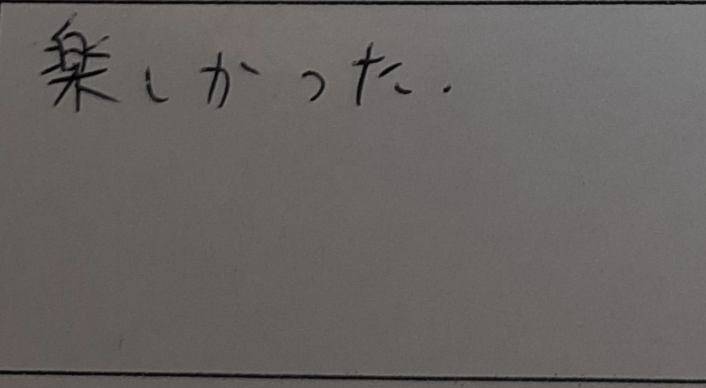 楽しかった.